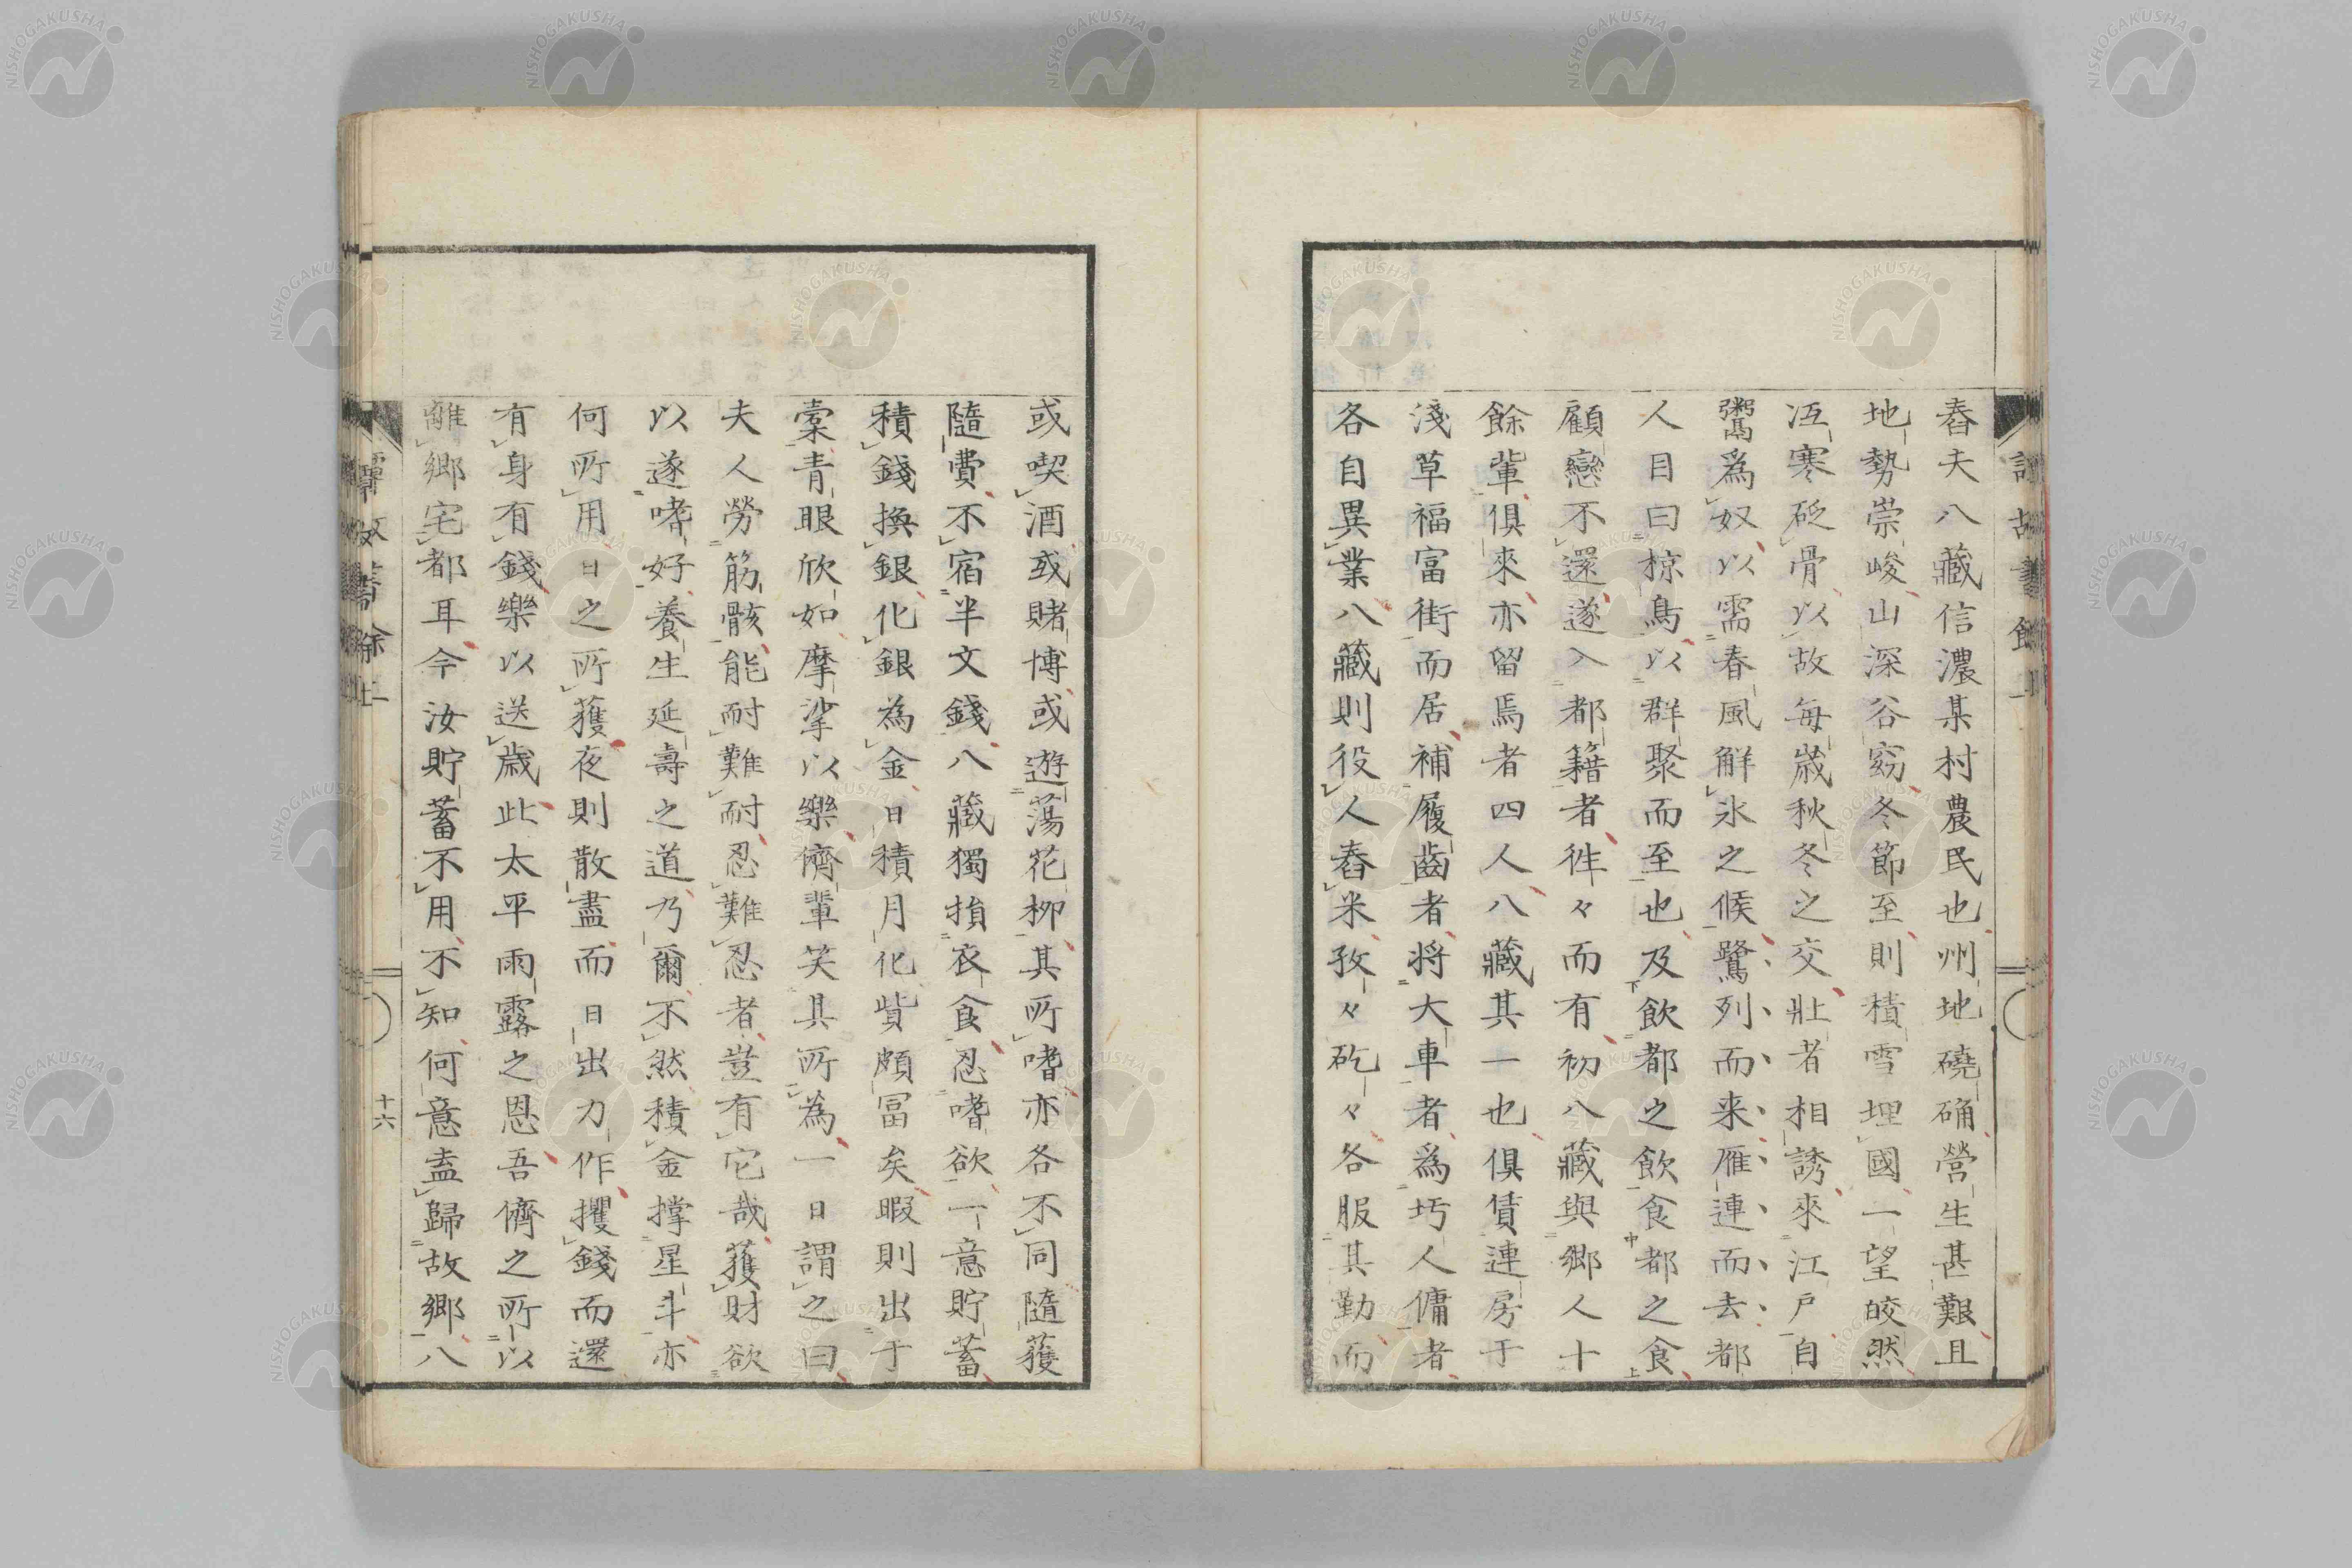 舂夫八藏信濃某村農民也州地磽确營生甚艱且
地勢崇峻山深谷窈冬節至則積雪埋國一望皎然
冱寒砭骨以故每歲秋冬之交壯者相誘來江戶自
鬻爲奴以需春風解氷之候鷺列而来雁連而去都
人目曰椋鳥以群聚而至也及飲都之飲食都之食
顧戀不還遂入都籍者徃々而有初八藏與鄉人十
餘輩俱來亦留焉者四人八藏其一也俱賃連房于
淺草福富街而居補履齒者將大車者爲圬人傭者
各自異業八藏則役人舂米孜々矻々各服其勤而
或喫酒或賭博或遊蕩花柳其所嗜亦各不同隨獲
隨費不宿半文錢八藏獨損衣食忍嗜欲一意貯蓄
積錢換銀化銀為金日積月化貲頗冨矣暇則出于
橐青眼欣如摩挲以樂儕輩笑其所為一日謂之曰
夫人勞筋骸能耐難耐忍難忍者豈有它哉獲財欲
以遂嗜好養生延壽之道乃爾不然積金撑星斗亦
何所用日之所獲夜則散盡而日出力作攫錢而還
有身有錢樂以送歲此太平雨露之恩吾儕之所以
離鄉宅都耳今汝貯蓄不用不知何意盍歸故鄉八
十六
NISHOGAKUSHA